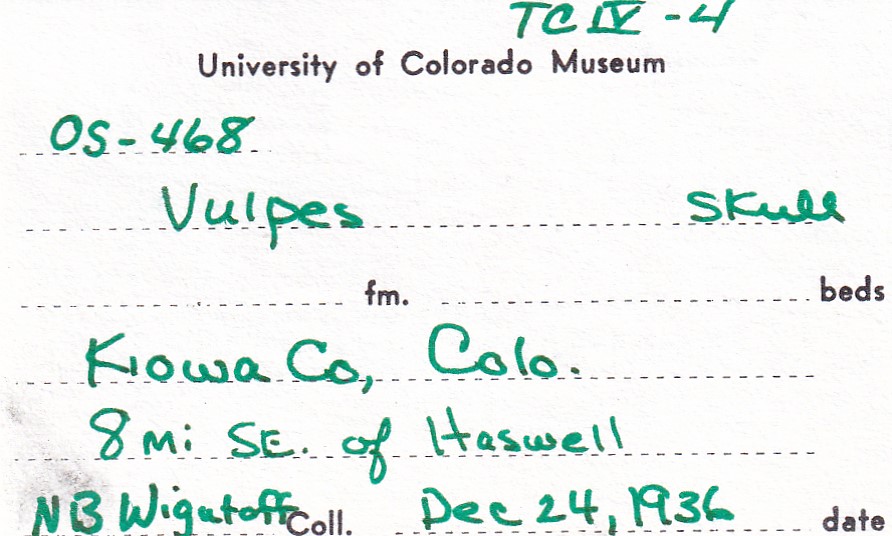 TC IV - 4
University of Colorado Museum
OS-468
Vulpes Skull
fm. beds
Kiowa Co, Colo.
8 mi SE. of Haswell
NB Wigutoff Coll. Dec 24, 1936 date